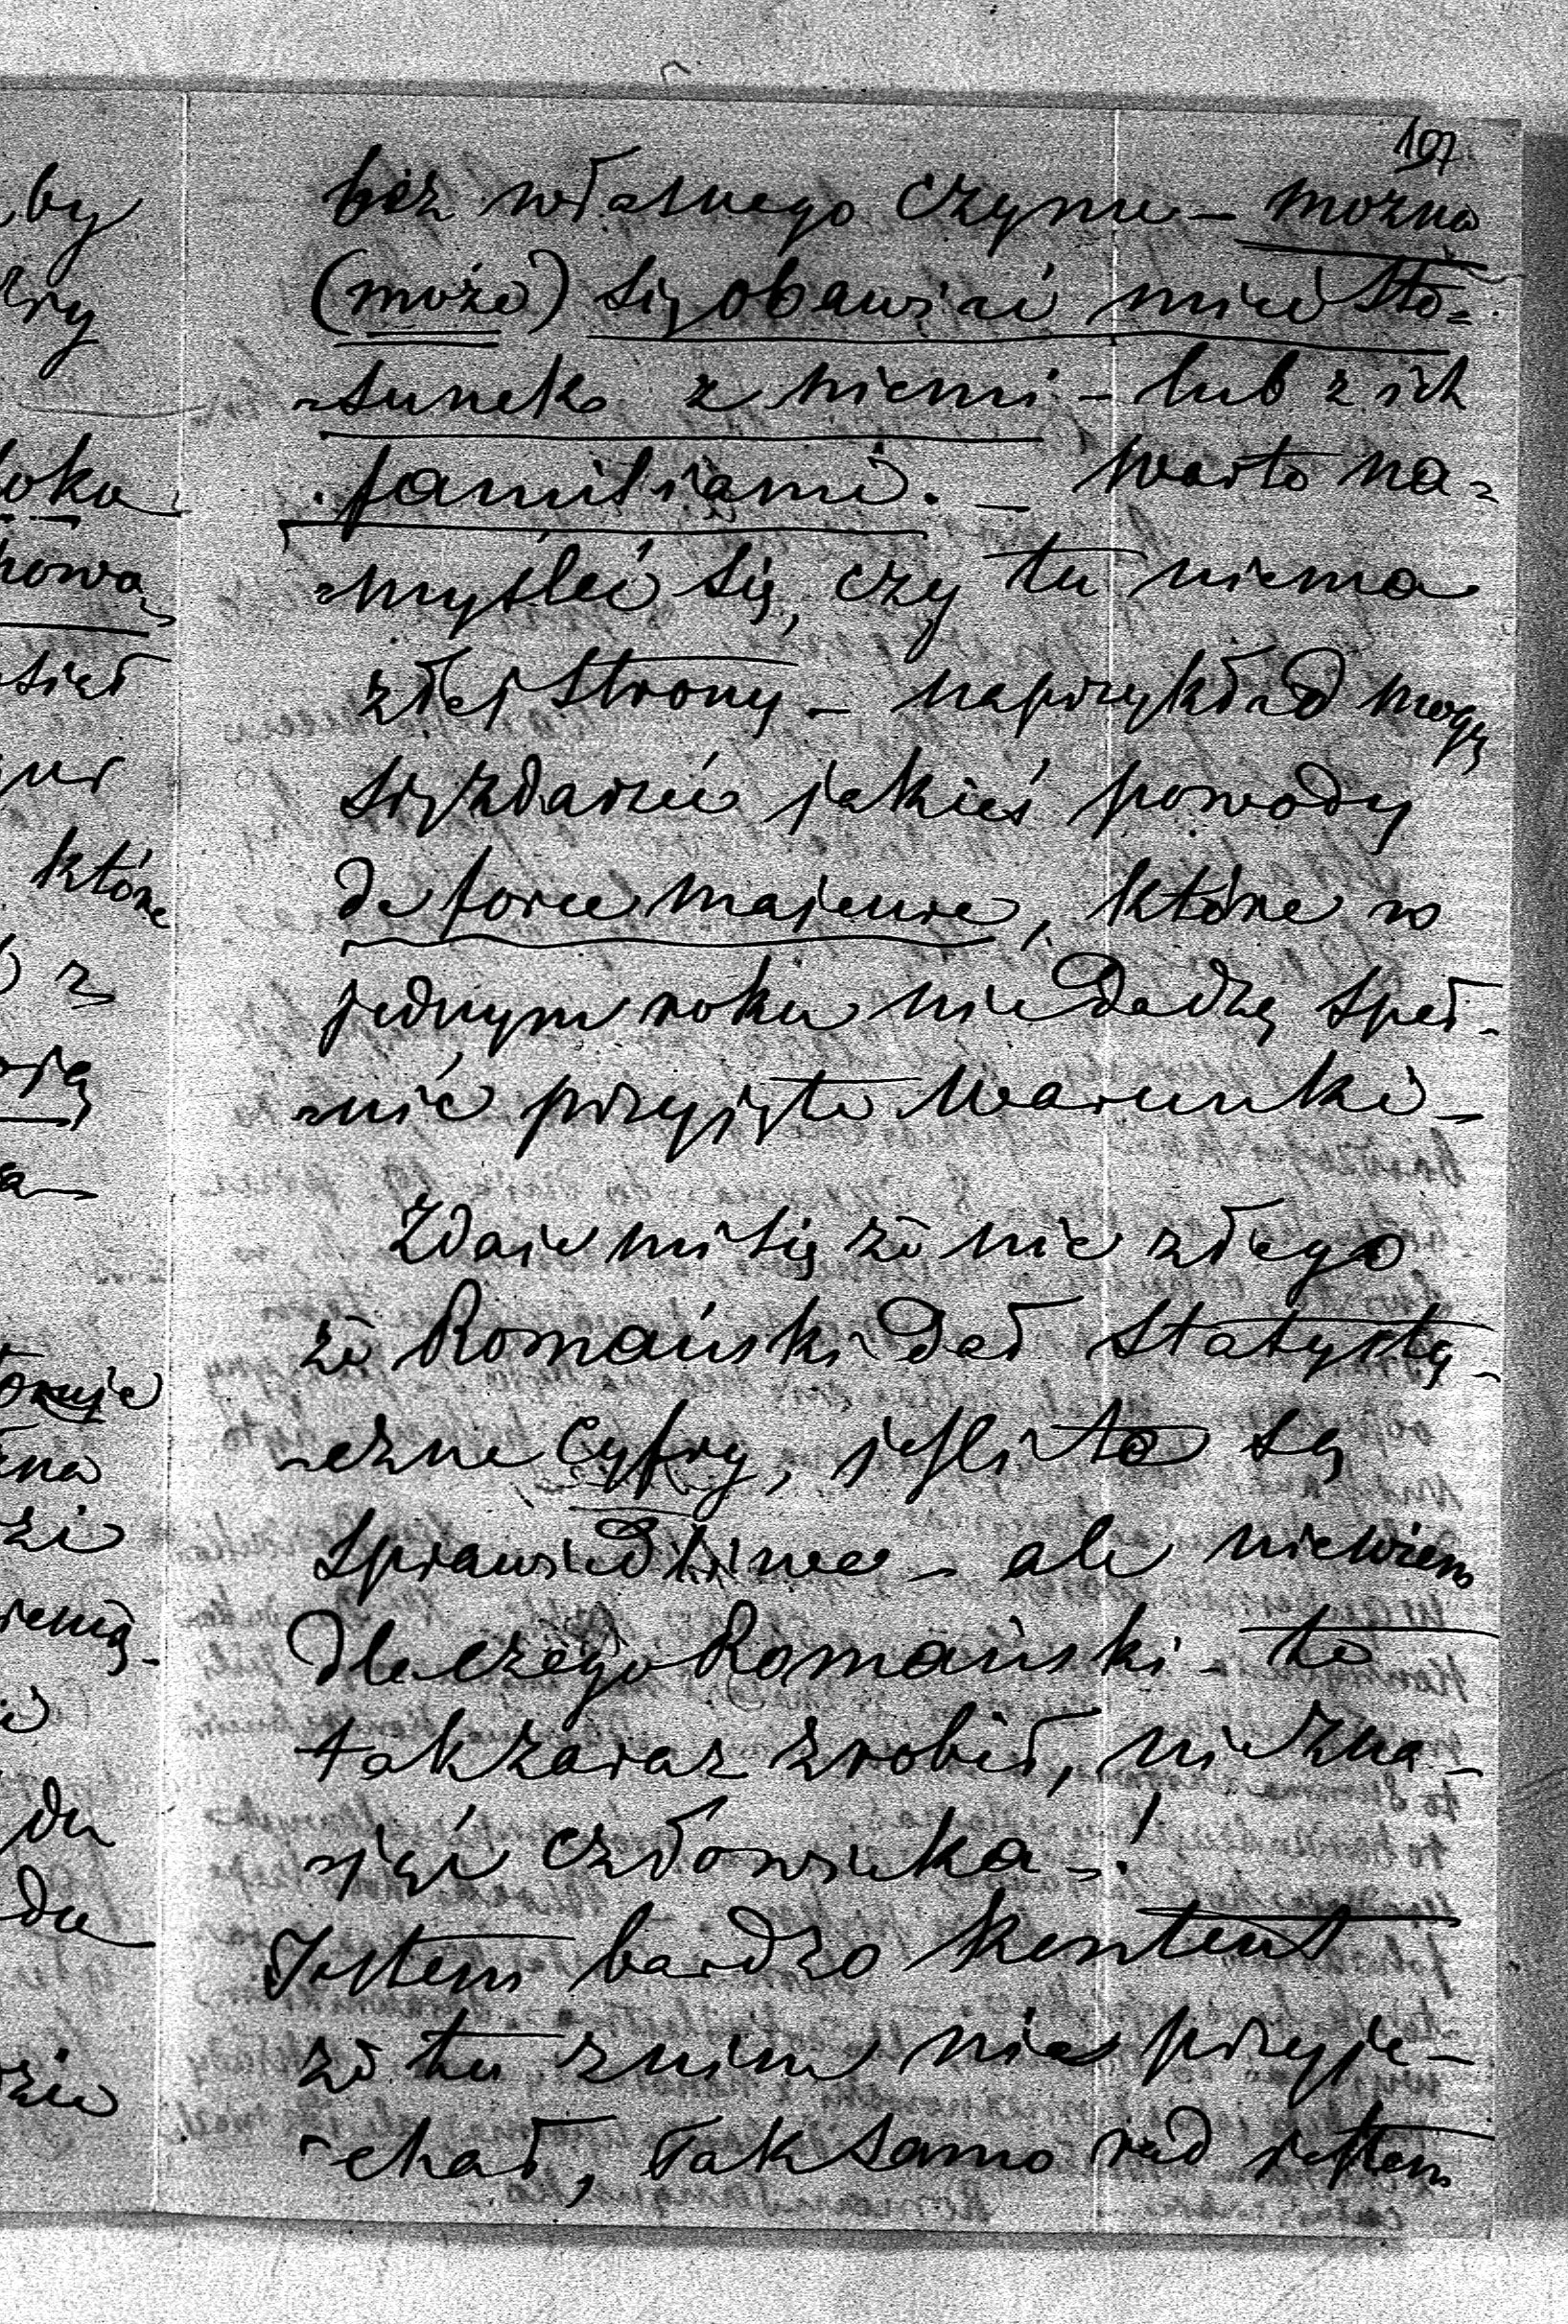 197
bez własnego czynu – można
(może) się obawiać mieć sto=
=sunek z niemi – lub z ich
familiami. – Warto na=
=myśleć się, czy tu niema
złej strony – naprzykład mogą
się zdarzeć jakieś powody
de force majeure, które w
jednym roku nie dadzą speł-
=nić przyjęte warunki –
Zdaie mi się że nic złego
że Romański dał statysty-
-czne cyfry, jeśli to są
sprawiedliwe – ale niewiem
dlaczego Romański – to
tak zaraz zrobił, nie zna-
-jąc człowieka –!
Jestem bardzo kontent
że tu z nim nie przyje-
-chał, tak samo rad jestem